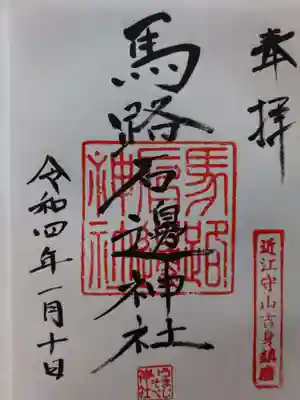 奉拝
馬路石邊神社
令和四年一月十日
近江守山吉身鎮座
馬路
石邊
神社